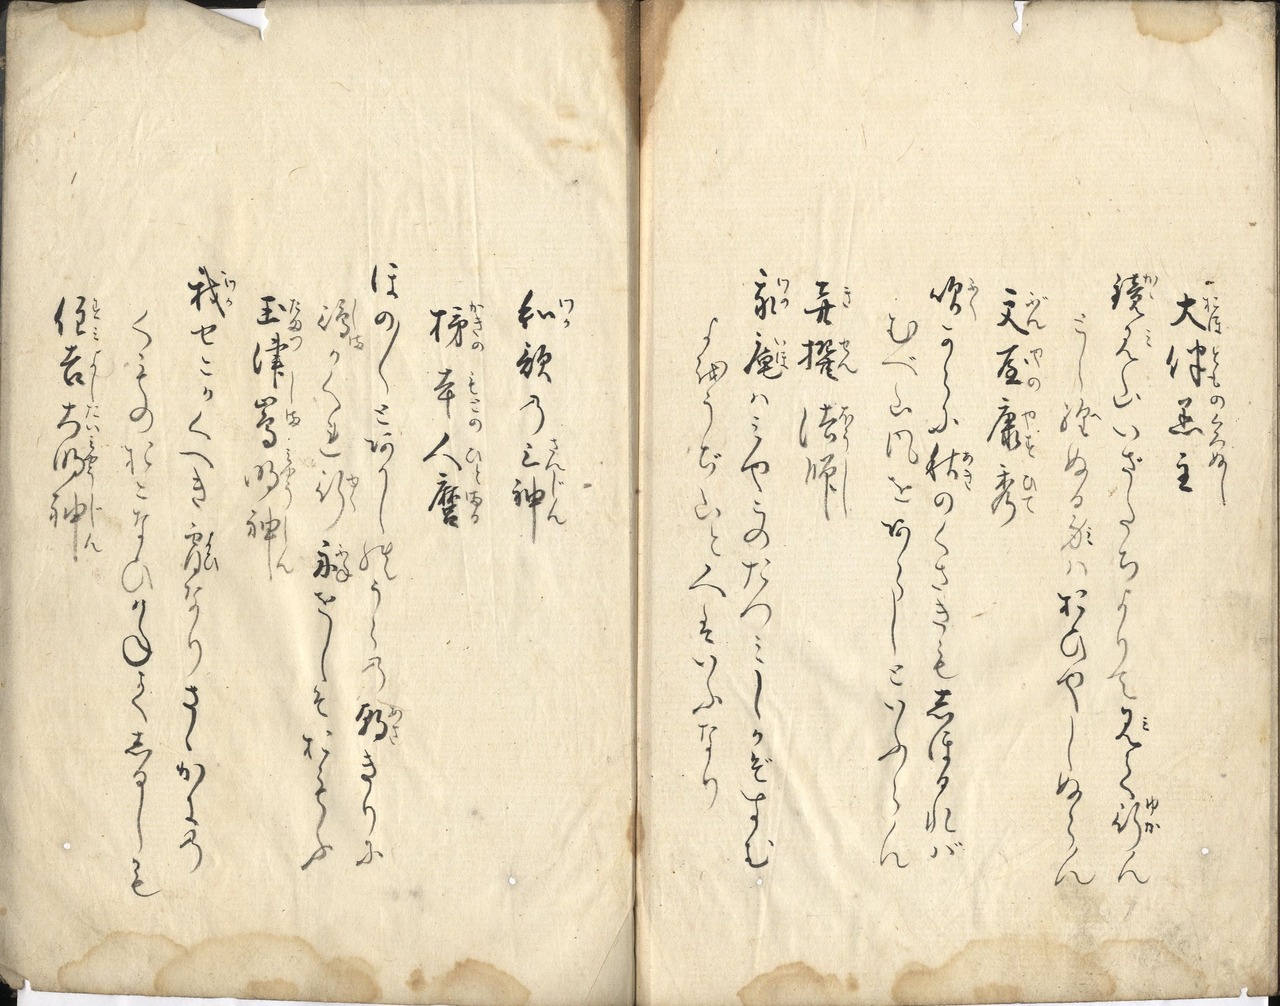 大伴黒主
鏡山いざたちよりて見て行ん
とし经ぬる身ハおひやしぬらん
文屋康秀
吹からに秋のくさきのしほるれバ
むべ山風をあらしといふらん
喜撰法師
我庵ハみやこのたつみしかぞすむ
よをうぢ山と人はいふなり
和歌乃三神
柿本人麿
ほの〱とあかしのうらの朝きりに
嶋かくれ行舟をしそおもふ
玉津嶋明神
我せこがくへき宵なりさゝがにの
くものおこなひかねてしるしも
住吉大明神